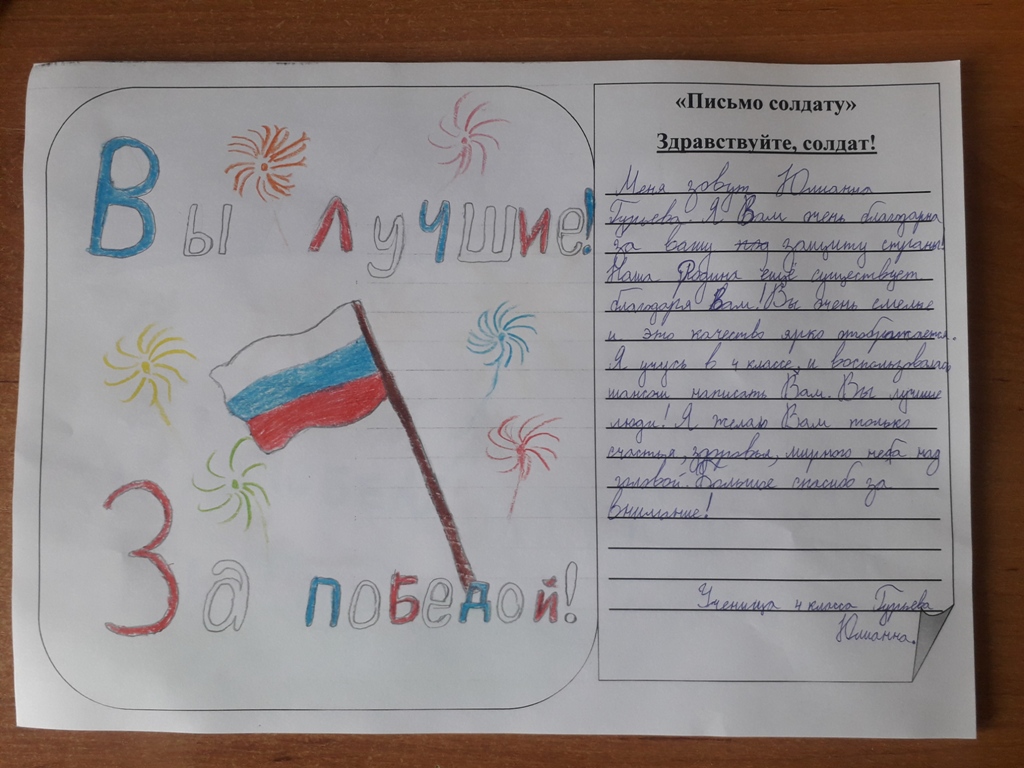 Вы лучшие!
За победой!
«Письмо солдату»
Здравствуйте, солдат!
Меня зовут Юлианна
Гурьева. Я Вам очень благодарна
за вашу защиту страны!
Наша Родина ещё существует
благодаря Вам! Вы очень смелые
и это качество ярко отображается.
Я учусь в 4 классе, и воспользовалась
шансом написать Вам. Вы лучшие
люди! Я желаю Вам только
счастье, здоровья, мирного неба над
головой. Большое спасибо за
внимание!
Ученица 4 класса Гурьева
Юлианна.